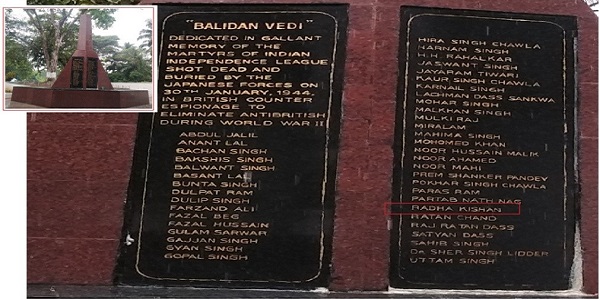 "BALIDAN VEDI"
DEDICATED IN GALLANT
MEMORY OF THE
MARTYRS OF INDIAN
INDEPENDENCE LEAGUE
SHOT DEAD AND
BURIED BY THE
JAPANESE FORCES ON
30TH JANUARY, 1944,
IN BRITISH COUNTER
ESPIONAGE TO
ELIMINATE ANTIBRITISH
DURING WORLD WAR II
ABDUL JALIL
ANANT LAL
BACHAN SINGH
BAKSHIS SINGH
BALWANT SINGH
BASANT LAL
BUNTA SINGH
DULPAT RAM
DULIP SINGH
FARZAND ALI
FAZAL BEG
FAZAL HUSSAIN
GULAM SARWAR
GAJJAN SINGH
GYAN SINGH
GOPAL SINGH
HIRA SINGH CHAWLA
HARNAM SINGH
H.H. RAHALKAR
JASWANT SINGH
JAYARAM TIWARI
KAUR SINGH CHAWLA
KARNAIL SINGH
LACHMAN DASS SANKWA
MOHAR SINGH
MALKHAN SINGH
MULKI RAJ
MIRALAM
MAHIMA SINGH
MOHOMED KHAN
NOOR HUSSAIN MALIK
NOOR AHAMED
NOOR MAHI
PREM SHANKER PANDEY
POKHAR SINGH CHAWLA
PARAS RAM
PARTAB NATH NAG
RADHA KISHAN
RATAN CHAND
RAJ RATAN DASS
SATYAN DASS
SAHIB SINGH
Dr. SHER SINGH
UTTAM SINGH